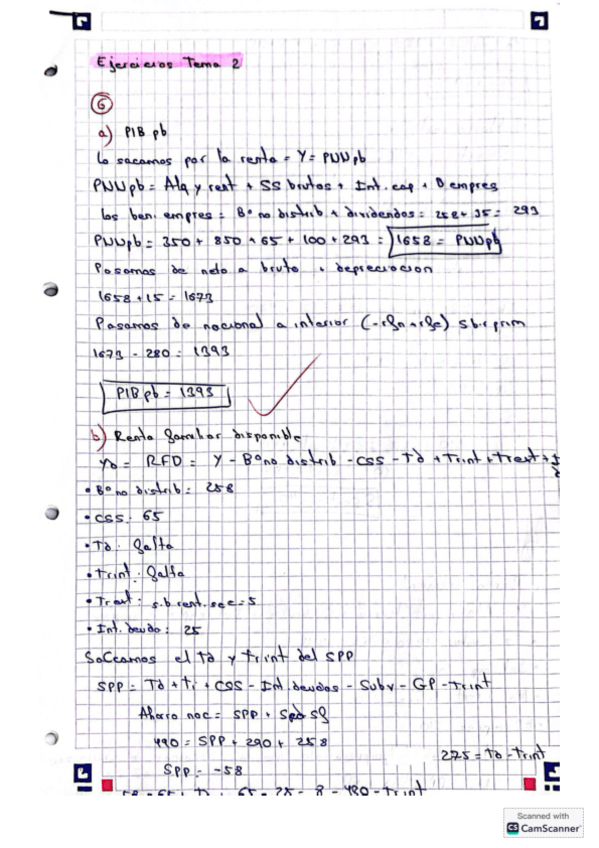 Ejercicios Tema 2
6
a) PIB pb
Lo sacamos por la renta = Y = PNN pb
PNNpb = Alq y rest + SS brutos + Int. cap + B empres
los ben. empres = Bº no distrib + dividendos = 258 + 35 = 293
PNNpb = 350 + 850 + 65 + 100 + 293 = 1658 = PNNpb
Pasamos de neto a bruto + depreciacion
1658 + 15 = 1673
Pasamos de nacional a interior (-rfn + rfe) sbr prim
1673 - 280 = 1393
PIB pb = 1393
b) Renta familiar disponible
Yd = RFD = Y - Bº no distrib - CSS - Td + Trint + Trext +
• Bº no distrib: 258
• CSS: 65
• Td: falta
• Trint: falta
• Trext: s.b. rent. sec = 5
• Int. deuda: 25
Saccamos el Td y Trint del SPP
SPP = Td + Ti + CSS - Int. deudas - Subv - GP - Trint
Ahorro nac = SPP + Sfam + Sf
490 = SPP + 290 + 258
SPP = -58
275 = Td - Trint
-58 = 65 + - 25 - 8 - 480 - Trint
Scanned with
CS CamScanner